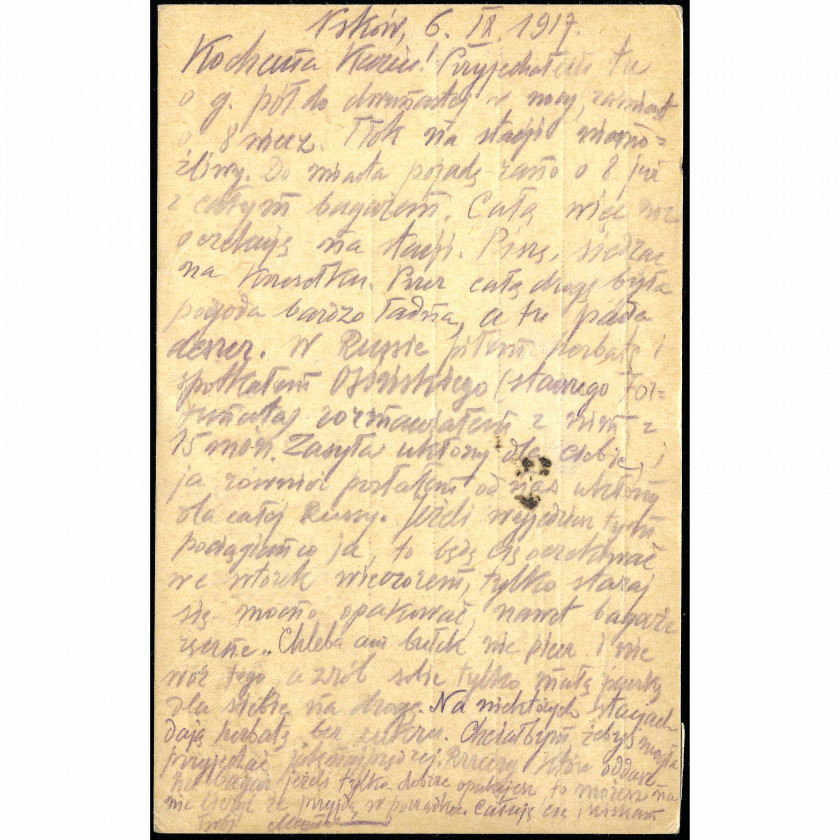 Psków, 6. IX. 1917.
Kochana Kaziu! Przyjechałem tu
o g. pół do dwunastej w nocy, zamiast
o 8 wiecz. Tłok na stacji niemo=
żliwy. Do miasta pojadę rano o 8 już
z całym bagażem. Całą więc noc
oczekuję na stacji. Piszę, siedząc
na koszołku. Przez całą drogę była
pogoda bardzo ładna, a tu pada
deszcz. W Russie piłem herbatę i
spotkałem Osińskiego (starego For=
tunata) rozmawiałem z nim z
15 min. Zasyła ukłony dla ciebie, i
ja również posłałem od nas ukłony
dla całej Russy. Jeżeli wyjedziesz tym
pociągiem co ja, to będę cię oczekiwać
we wtorek wieczorem, tylko staraj
się mocno opakować, nawet bagaże
ręczne. Chleba ani bułek nie piecz i nie
wóź tego, a zrób sobie tylko małą paczkę
dla siebie na drogę. Na niektórych stacjach
dają herbatę bez cukru. Chciałbym żebyś mogła
przyjechać jaknajprędzej. Rzeczy które oddasz
na bagaż jeżeli tylko dobrze opakujesz to możesz na
nie liczyć że przyjdą w porządku. Całuję cię, i ściskam
Twój